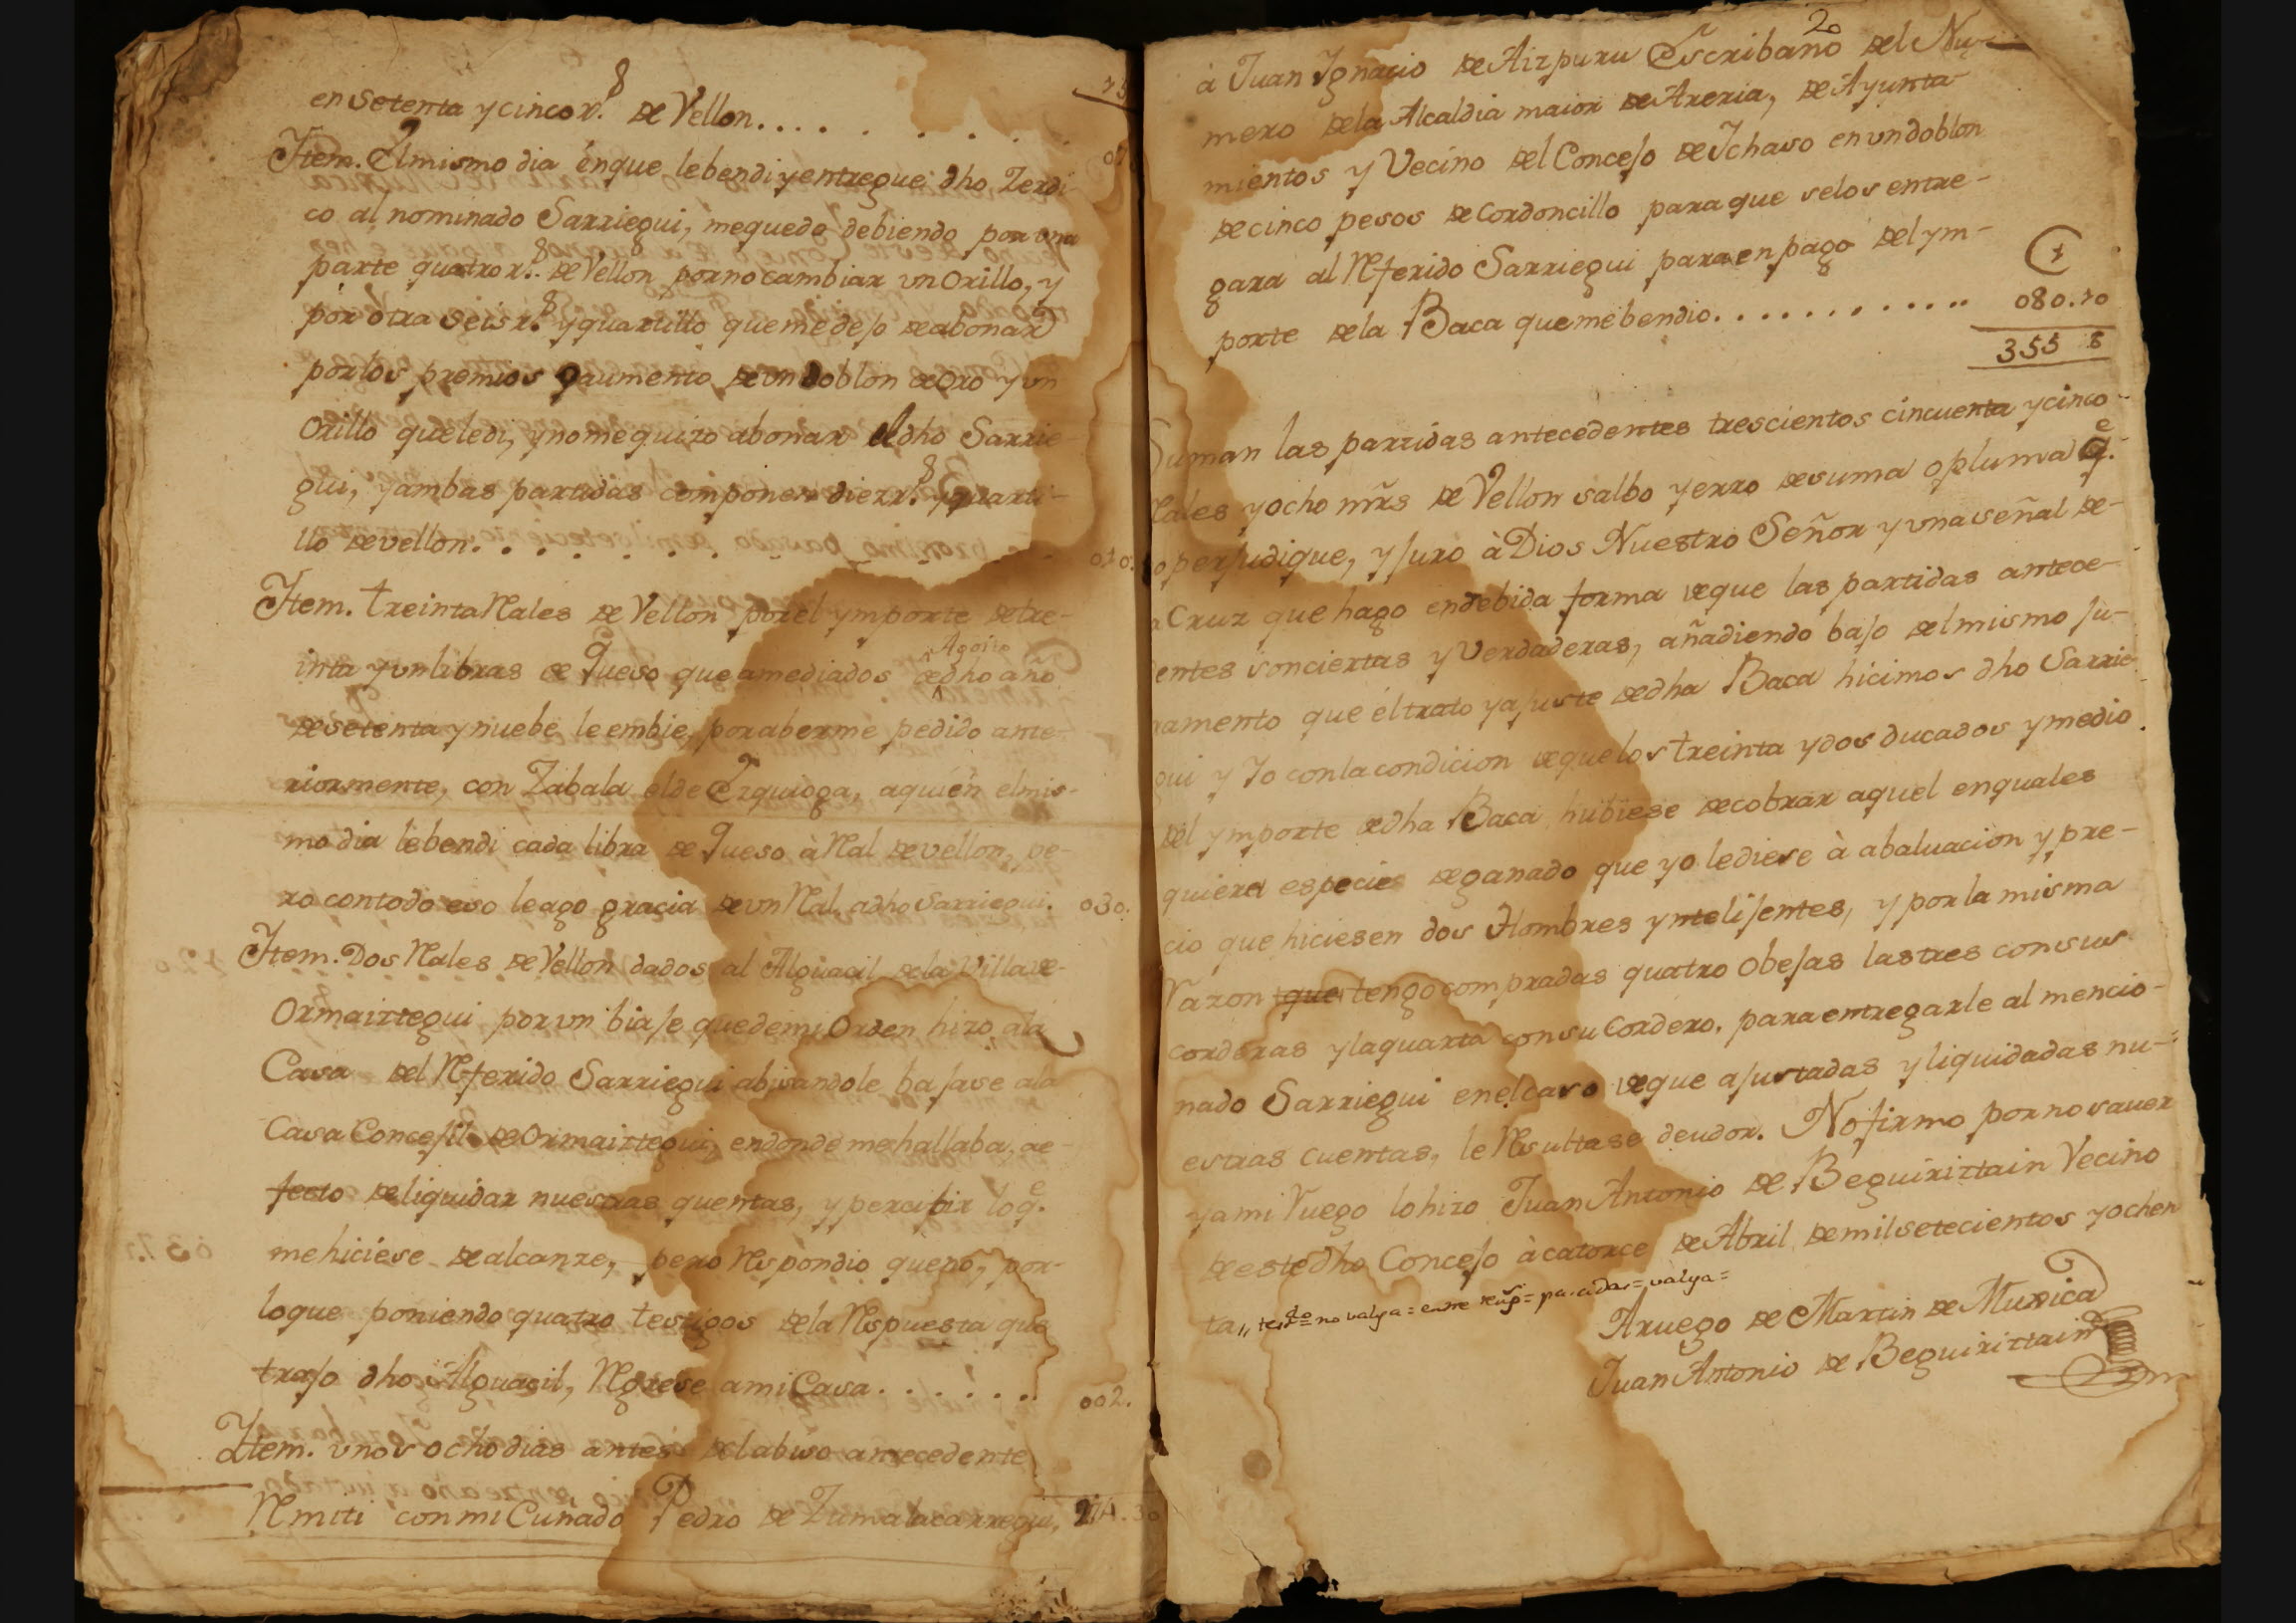 en Setenta y cinco r.s de Vellon....
75
Jtem. El mismo dia en que le bendi y entregue dho Zerdi-
co al nominado Sarriegui, me quedo debiendo por una
parte quatro r.s de Vellon por no cambiar un Orillo, y
por otra seis r.s y quartillo que me dejo de abonar
por los premios o aumento de un Doblon de Oro y un
Orillo que le di, y no me quizo abonar el dho Sarrie-
gui, y ambas partidas componen diez r.s y quarti-
llo de vellon........ 010.
Jtem. treinta Rales de Vellon por el ymporte de tre-
Agosto
inta y un libras de Queso que a mediados de dho año
de setenta y nuebe le embie, por aberme pedido ante-
riormente, con Zabala el de Ezquioga, a quien el mis-
mo dia le bendi cada libra de Queso à Ral de vellon, pe-
ro con todo eso le ago gracia de un Ral a dho Sarriegui. 030.
Jtem. Dos Rales de Vellon dados al Alguacil de la Villa de
Ormaiztegui por un biaje que de mi Orden hizo a la
Casa del Referido Sarriegui abisandole bajase a la
Casa Concejil de Ormaiztegui, en donde me hallaba, ae-
fecto de liquidar nuestras quentas, y percibir lo q.e
me hiciese de alcanze, pero Respondio que no, por-
lo que poniendo quatro testigos de la Respuesta que
trajo dho Alguacil, Regrese a mi Casa....... 002.
Jtem. unos ocho dias antes del abiso antecedente
Remiti con mi Cuñado Pedro de Zumalacarregui, 274.30
20
à Juan Ignacio de Aizpuru Escribano del Nu-
mero de la Alcaldia maior de Areria, de Ayunta-
mientos y Vecino del Concejo de Ichaso en un doblon
de cinco pesos de Cordoncillo para que se los entre-
gara al Referido Sarriegui para en pago del ym-
porte de la Baca que me bendio............ 080.10
355 8
Suman las partidas antecedentes trescientos cincuenta y cinco
Rales y ocho mrs de Vellon salbo yerro de suma o pluma q.e
no perjudique, y juro à Dios Nuestro Señor y una señal de
la Cruz que hago en debida forma de que las partidas antece-
dentes son ciertas y Verdaderas, añadiendo bajo del mismo ju-
ramento que el trato y ajuste de dha Baca hicimos dho Sarrie-
gui y Yo con la condicion de que los treinta y dos ducados y medio
del ymporte de dha Baca hubiese de cobrar aquel en quales
quiera especies de ganado que yo le diese à abaluacion y pre-
cio que hiciesen dos Hombres ynteligentes, y por la misma
Razon que tengo compradas quatro Obejas las tres con sus
corderas y la quarta con su Cordero, para entregarle al mencio-
nado Sarriegui en el caso de que ajustadas y liquidadas nu-
estras cuentas, le Resultase deudor. No firmo por no saver
y a mi Ruego lo hizo Juan Antonio de Beguiriztain Vecino
de este dho Concejo à catorce de Abril de mil setecientos y ochen
ta,, test.do = no valga = entre reng.s = partidas = valga =
A ruego de Martin de Muxica
Juan Antonio de Beguiriztain